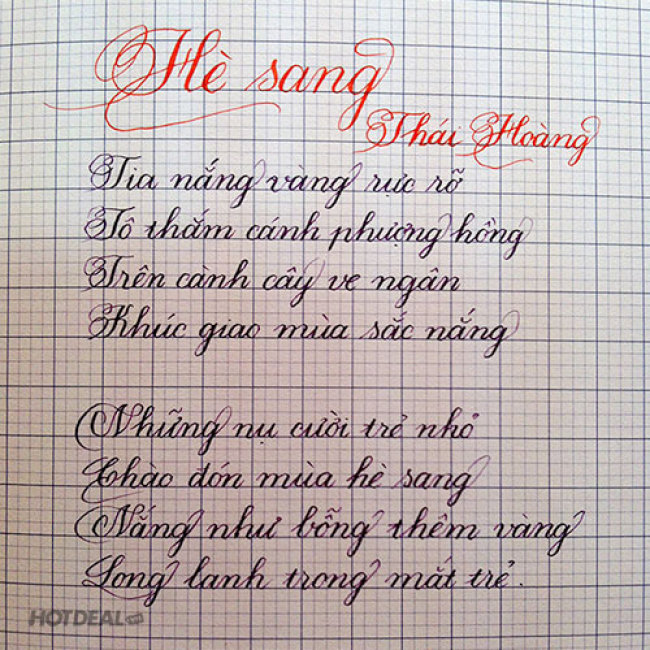 Hè sang
Thái Hoàng
Tia nắng vàng rực rỡ
Tô thắm cánh phượng hồng
Trên cành cây ve ngân
Khúc giao mùa sắc nắng
Những nụ cười trẻ nhỏ
Chào đón mùa hè sang
Nắng như bỗng thêm vàng
Long lanh trong mắt trẻ.
HOTDEAL